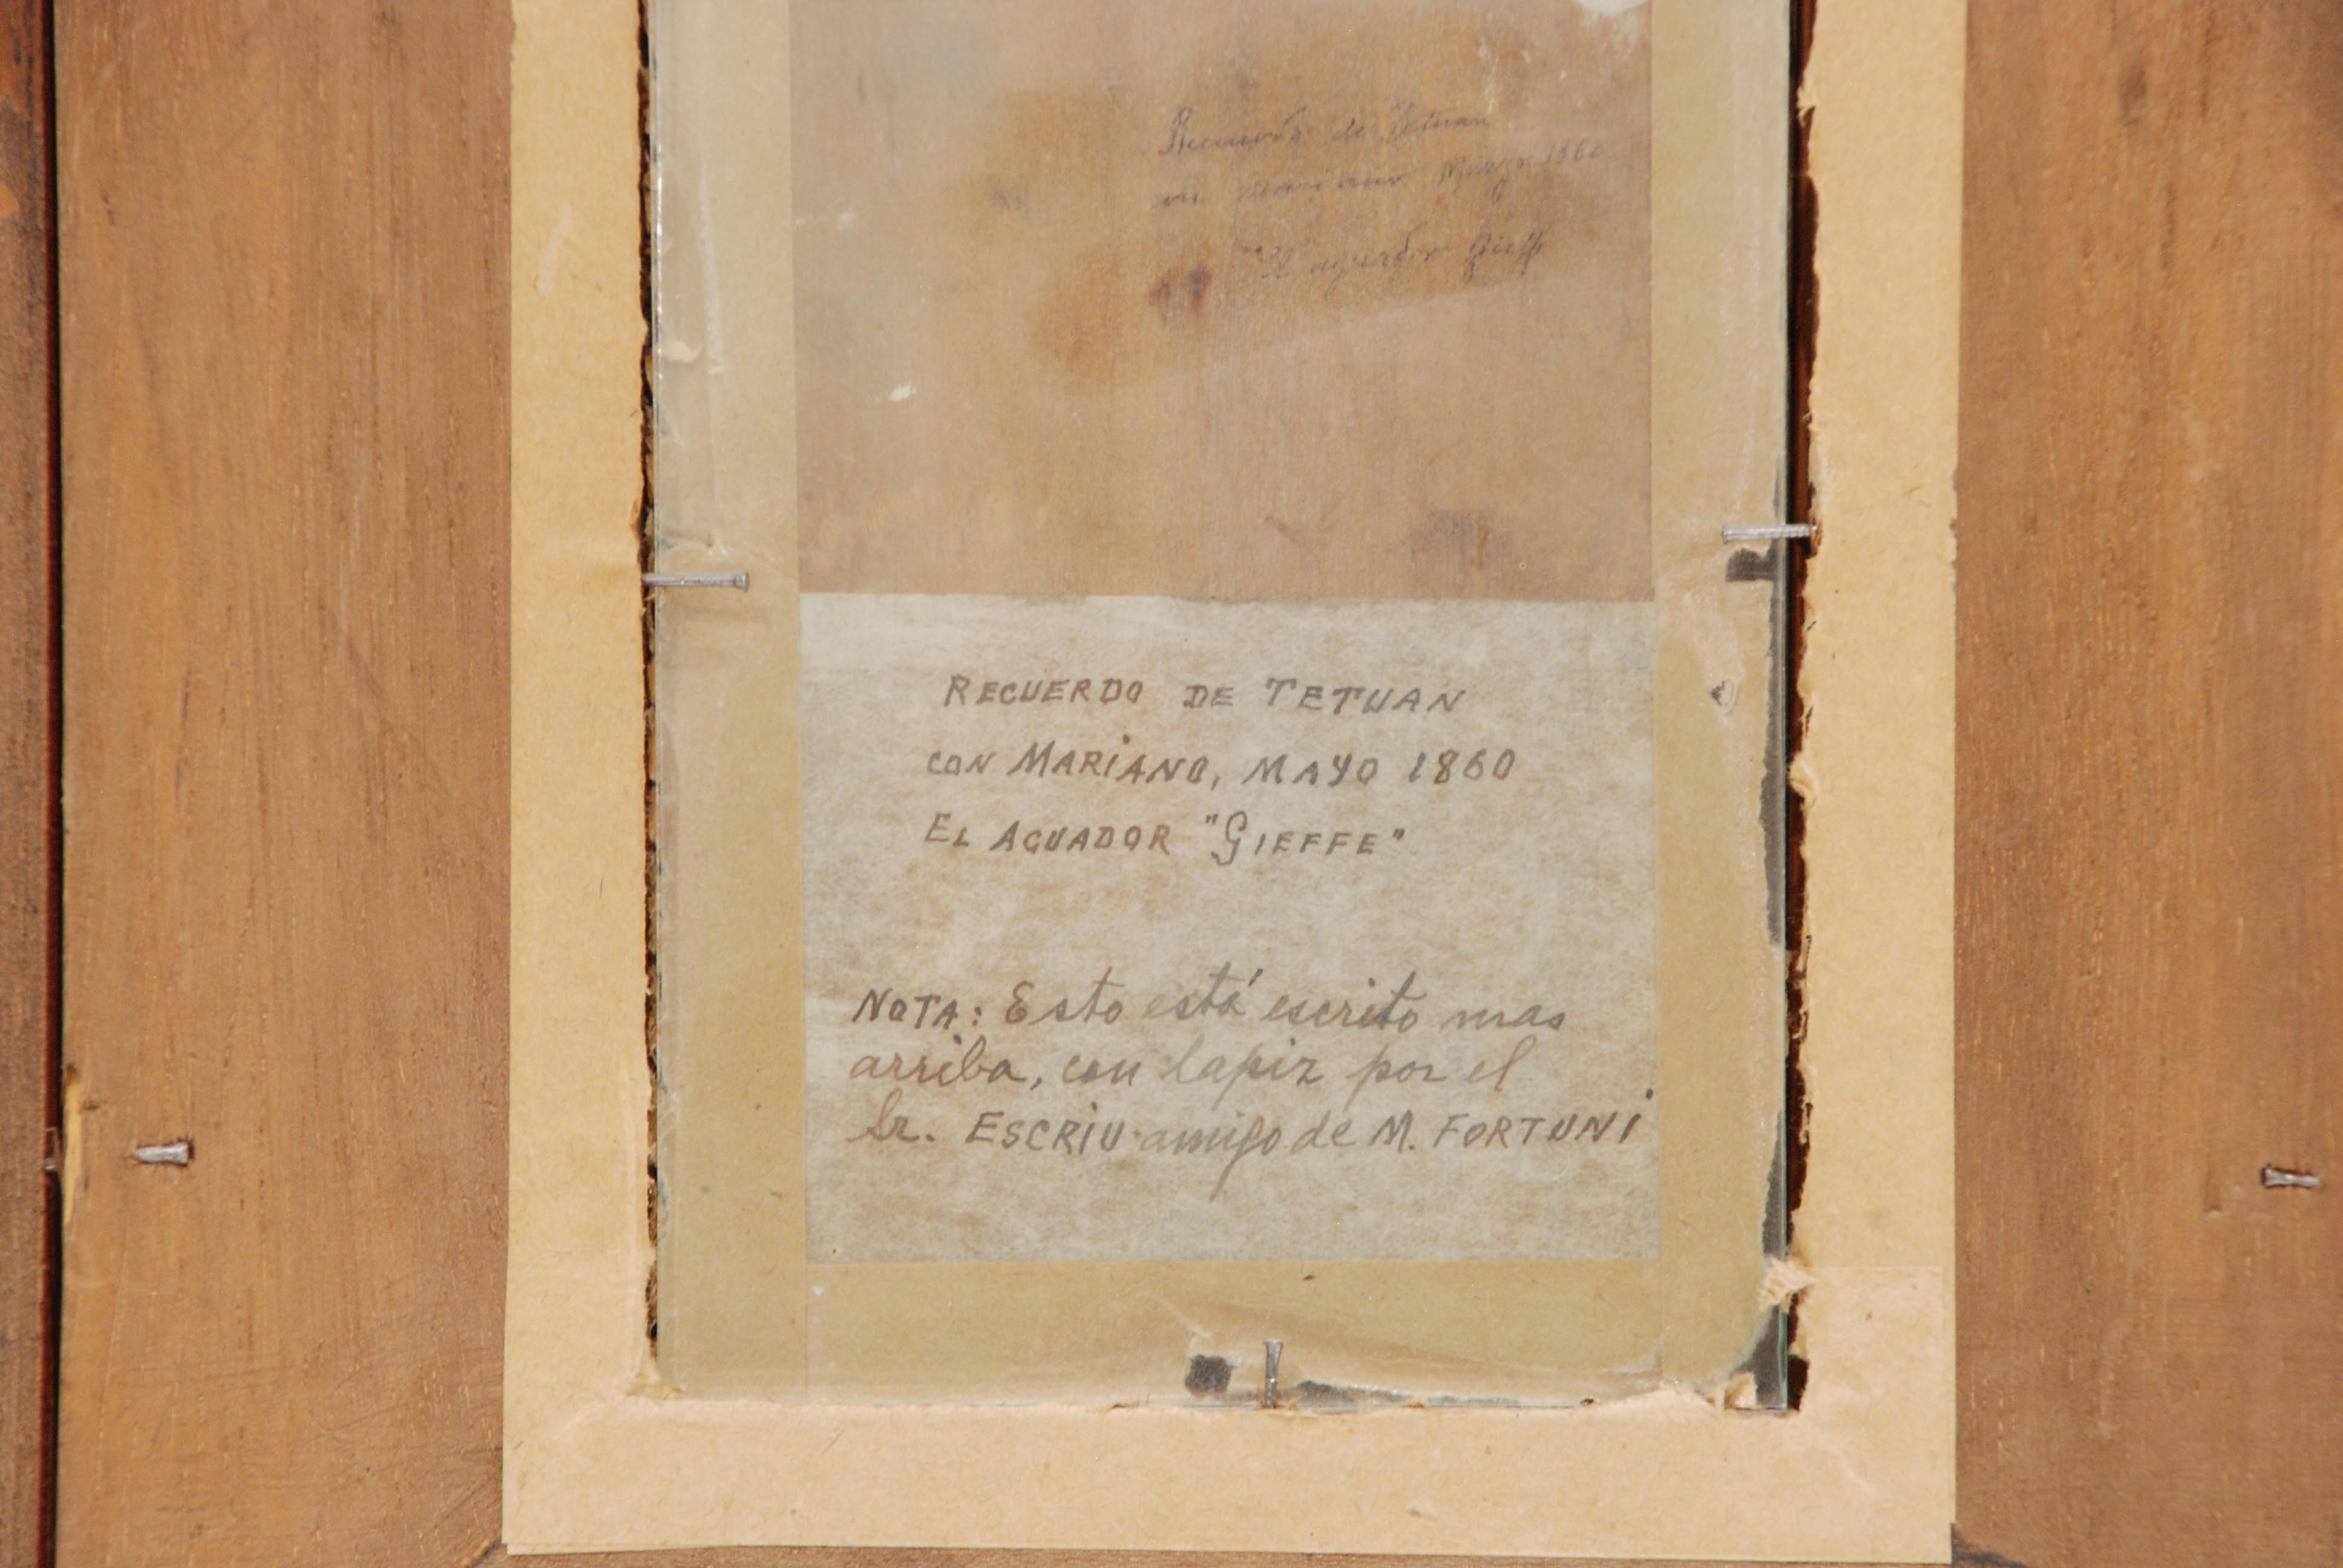 Recuerdo de Tetuan
con Mariano 1860
"El aguador Gieffe
RECUERDO DE TETUAN
CON MARIANO, MAYO 1860
EL AGUADOR "GIEFFE"
NOTA: Esto está escrito mas
arriba, con lapiz por el
Sr. ESCRIU amigo de M. FORTUNI